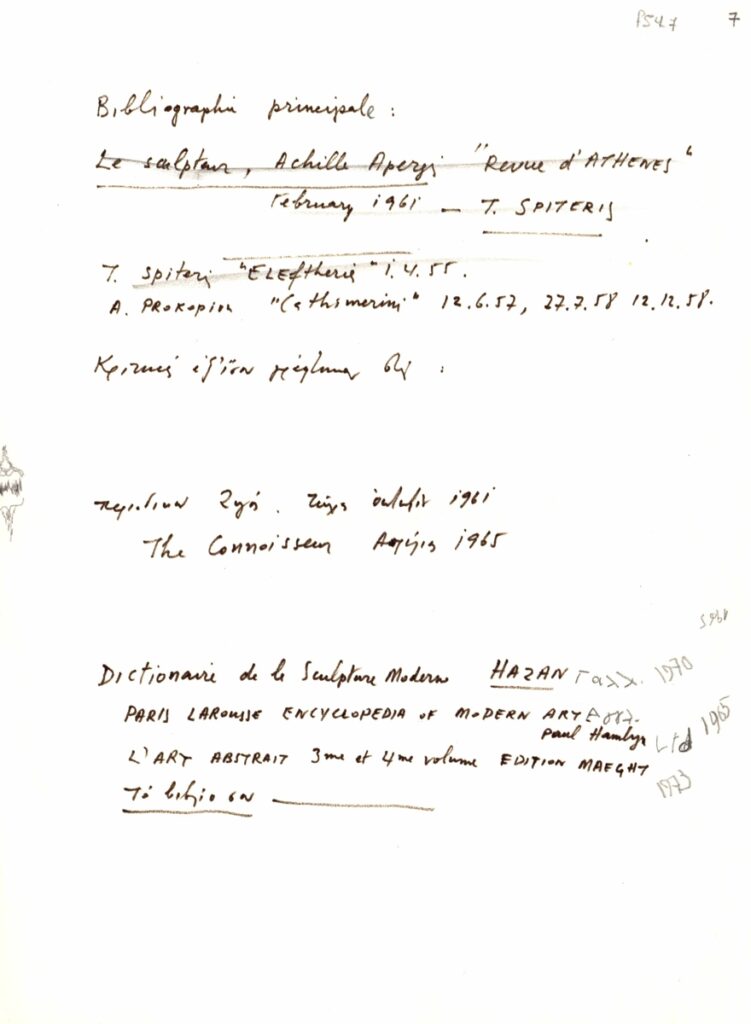 P547 7
Bibliographie principale :
Le sculpteur, Achille Apergi "Revue d'ATHENES"
February 1961 — T. SPITERIS
T. Spiteri "ELEftherie" 1.4.55.
A. PROKOPIOU "Cathimerini" 12.6.57, 27.7.58 12.12.58.
:
1961
The Connoisseur 1965
Dictionaire de le Sculpture Moderne HAZAN Γαλλ. 1970
PARIS LAROUSSE ENCYCLOPEDIA OF MODERN ART
Paul Hamlyn Ltd 1965
L'ART ABSTRAIT 3me et 4me volume EDITION MAEGHT
1973
Τό